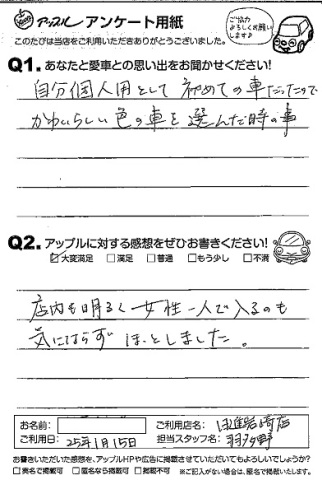 アップル アンケート用紙
ご協力
よろしくお願い
します♪
このたびは当店をご利用いただきありがとうございました。
Q1.あなたと愛車との思い出をお聞かせください!
自分個人用として 初めての車だったので
かわいらしい色の車を選んだ時の事
Q2.アップルに対する感想をぜひお書きください!
☑大変満足 □満足 □普通 □もう少し □不満
店内も明るく女性一人で入るのも
気にならず ほっとしました。
お名前: ご利用店名: 崎店
ご利用日: 25年1月15日 担当スタッフ名: 羽多野
お書きいただいた感想を、アップルHPや広告に掲載させていただいてもよろしいでしょうか?
□実名で掲載可 □匿名なら掲載可 □掲載不可 ※ご記入がない場合は、匿名で掲載いたします。